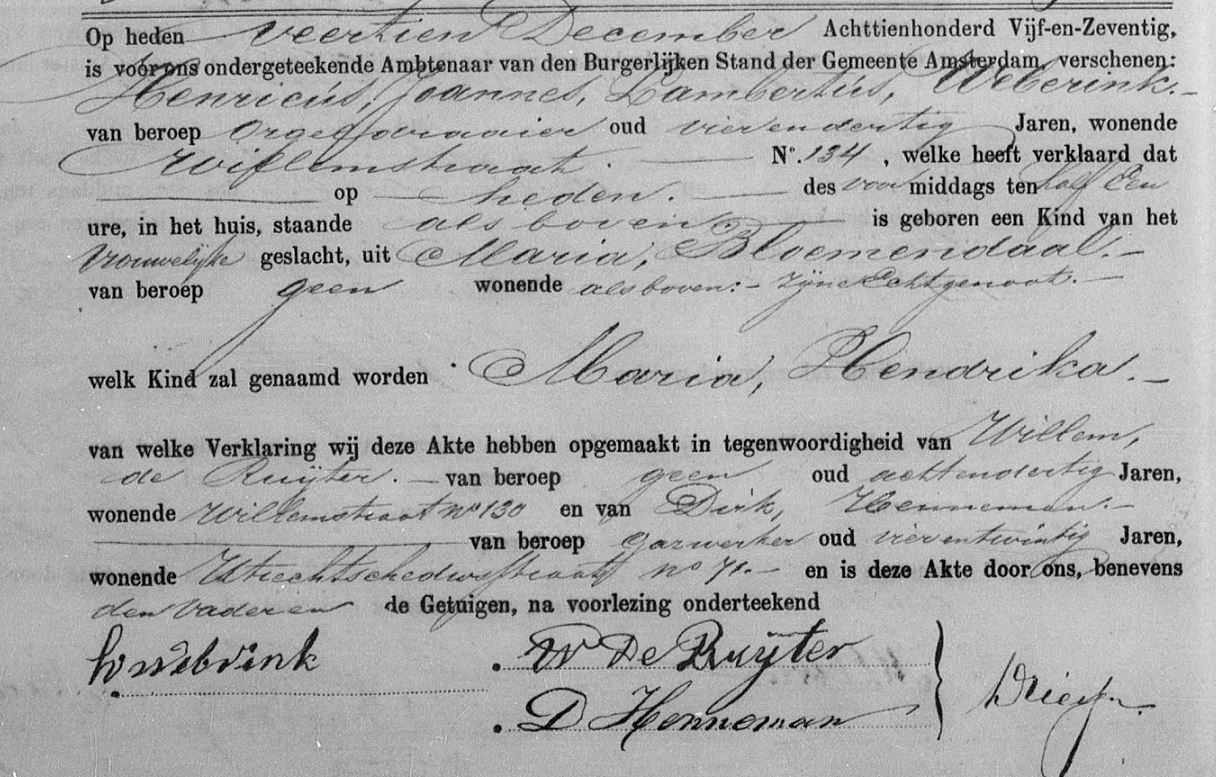 Op heden veertien December Achttienhonderd Vijf-en-Zeventig,
is voor ons ondergeteekende Ambtenaar van den Burgerlijken Stand der Gemeente Amsterdam, verschenen:
Henricus, Joannes, Lambertus, Weberink.-
van beroep Orgeldraaier oud vierendertig Jaren, wonende
Willemstraat. No. 134, welke heeft verklaard dat
op heden. des voor middags ten half Een
ure, in het huis, staande als boven is geboren een Kind van het
Vrouwelijke geslacht, uit Maria, Bloemendaal.-
van beroep geen wonende als boven:- zijne Echtgenoot.-
welk Kind zal genaamd worden Maria, Hendrika.-
van welke Verklaring wij deze Akte hebben opgemaakt in tegenwoordigheid van Willem,
de Ruijter.- van beroep geen oud achtendertig Jaren,
wonende Willemstraat no 130 en van Dirk, Henneman.-
van beroep Gaswerker oud vierentwintig Jaren,
wonende Utrechtschedwarsstraat no 71.- en is deze Akte door ons, benevens
den Vader en de Getuigen, na voorlezing onderteekend
W De Ruijter
D Henneman